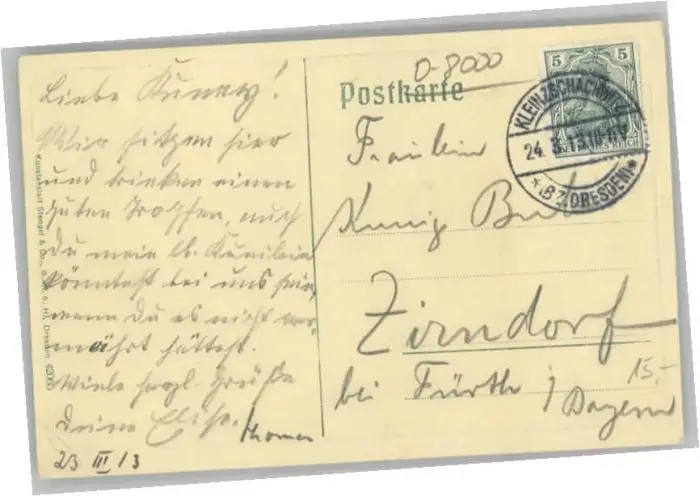 Liebe Kunny!
Wir sitzen hier
und trinken einen
guten Tropfen, auch
Du mein lb. Kunilein
könntest bei uns sein,
wenn Du es nicht ver-
mährt hättest.
Viele herzl. Grüße
Deine Elise.
Thomas
23 III 13
Kunstanstalt Stengel & Co., Dresden
D-8000
Postkarte
Fräulein
Kunig
Zirndorf
bei Fürth i/Bayern
15.-
5 5
DEUTSCHES REICH
KLEINZSCHACHWITZ
24. 3. 13. 10-11V
*(BZ. DRESDEN)*